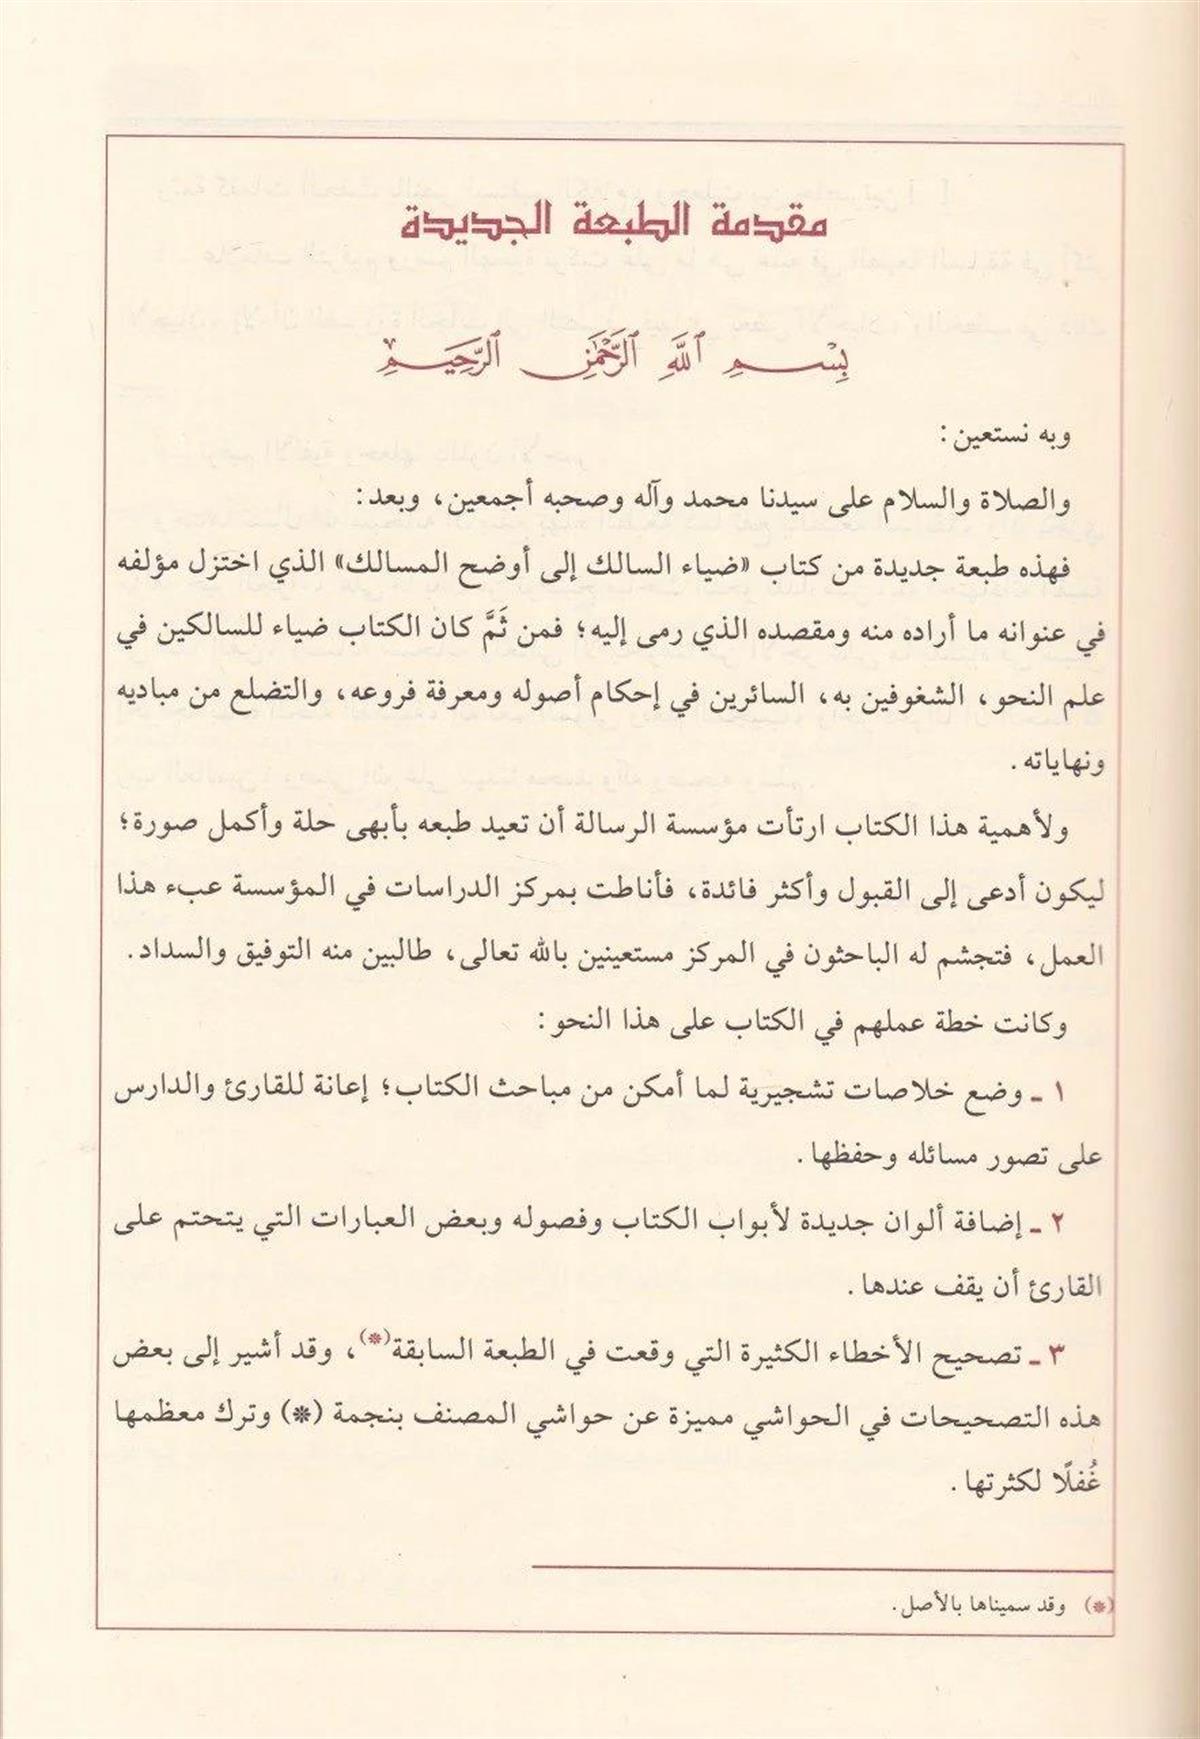 مقدمة الطبعة الجديدة
بِسْمِ ٱللَّهِ ٱلرَّحْمَٰنِ ٱلرَّحِيمِ
وبه نستعين:
والصلاة والسلام على سيدنا محمد وآله وصحبه أجمعين، وبعد:
فهذه طبعة جديدة من كتاب «ضياء السالك إلى أوضح المسالك» الذي اختزل مؤلفه
في عنوانه ما أراده منه ومقصده الذي رمى إليه؛ فمن ثَمَّ كان الكتاب ضياء للسالكين في
علم النحو، الشغوفين به، السائرين في إحكام أصوله ومعرفة فروعه، والتضلع من مباديه
ونهاياته.
ولأهمية هذا الكتاب ارتأت مؤسسة الرسالة أن تعيد طبعه بأبهى حلة وأكمل صورة؛
ليكون أدعى إلى القبول وأكثر فائدة، فأناطت بمركز الدراسات في المؤسسة عبء هذا
العمل، فتجشم له الباحثون في المركز مستعينين بالله تعالى، طالبين منه التوفيق والسداد.
وكانت خطة عملهم في الكتاب على هذا النحو:
١ ـ وضع خلاصات تشجيرية لما أمكن من مباحث الكتاب؛ إعانة للقارئ والدارس
على تصور مسائله وحفظها.
٢ ـ إضافة ألوان جديدة لأبواب الكتاب وفصوله وبعض العبارات التي يتحتم على
القارئ أن يقف عندها.
٣ ـ تصحيح الأخطاء الكثيرة التي وقعت في الطبعة السابقة(*)، وقد أشير إلى بعض
هذه التصحيحات في الحواشي مميزة عن حواشي المصنف بنجمة (*) وترك معظمها
غُفلًا لكثرتها.
(*) وقد سميناها بالأصل.